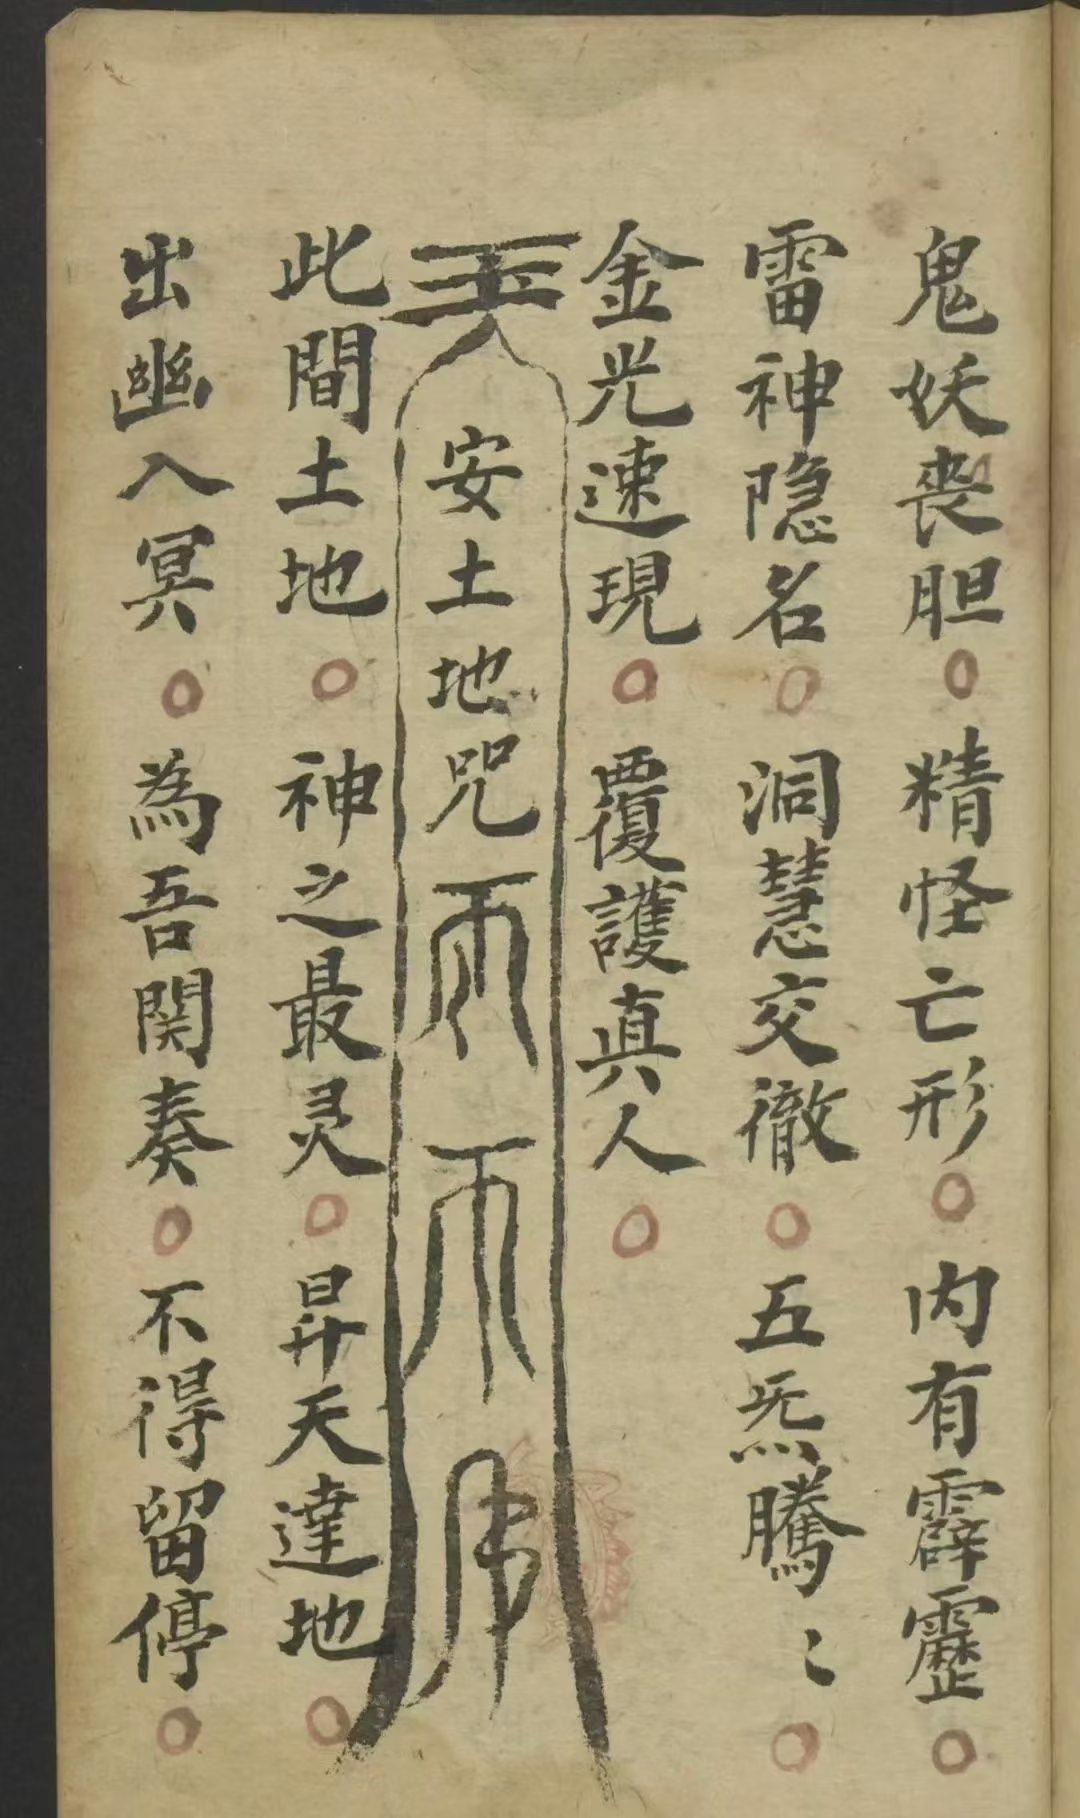 鬼妖丧胆○精怪亡形○内有霹靂○
雷神隐名○洞慧交徹○五炁騰〻○
金光速現○覆護真人○
安土地咒
此間土地○神之最灵○昇天達地○
出幽入冥○為吾関奏○不得留停○